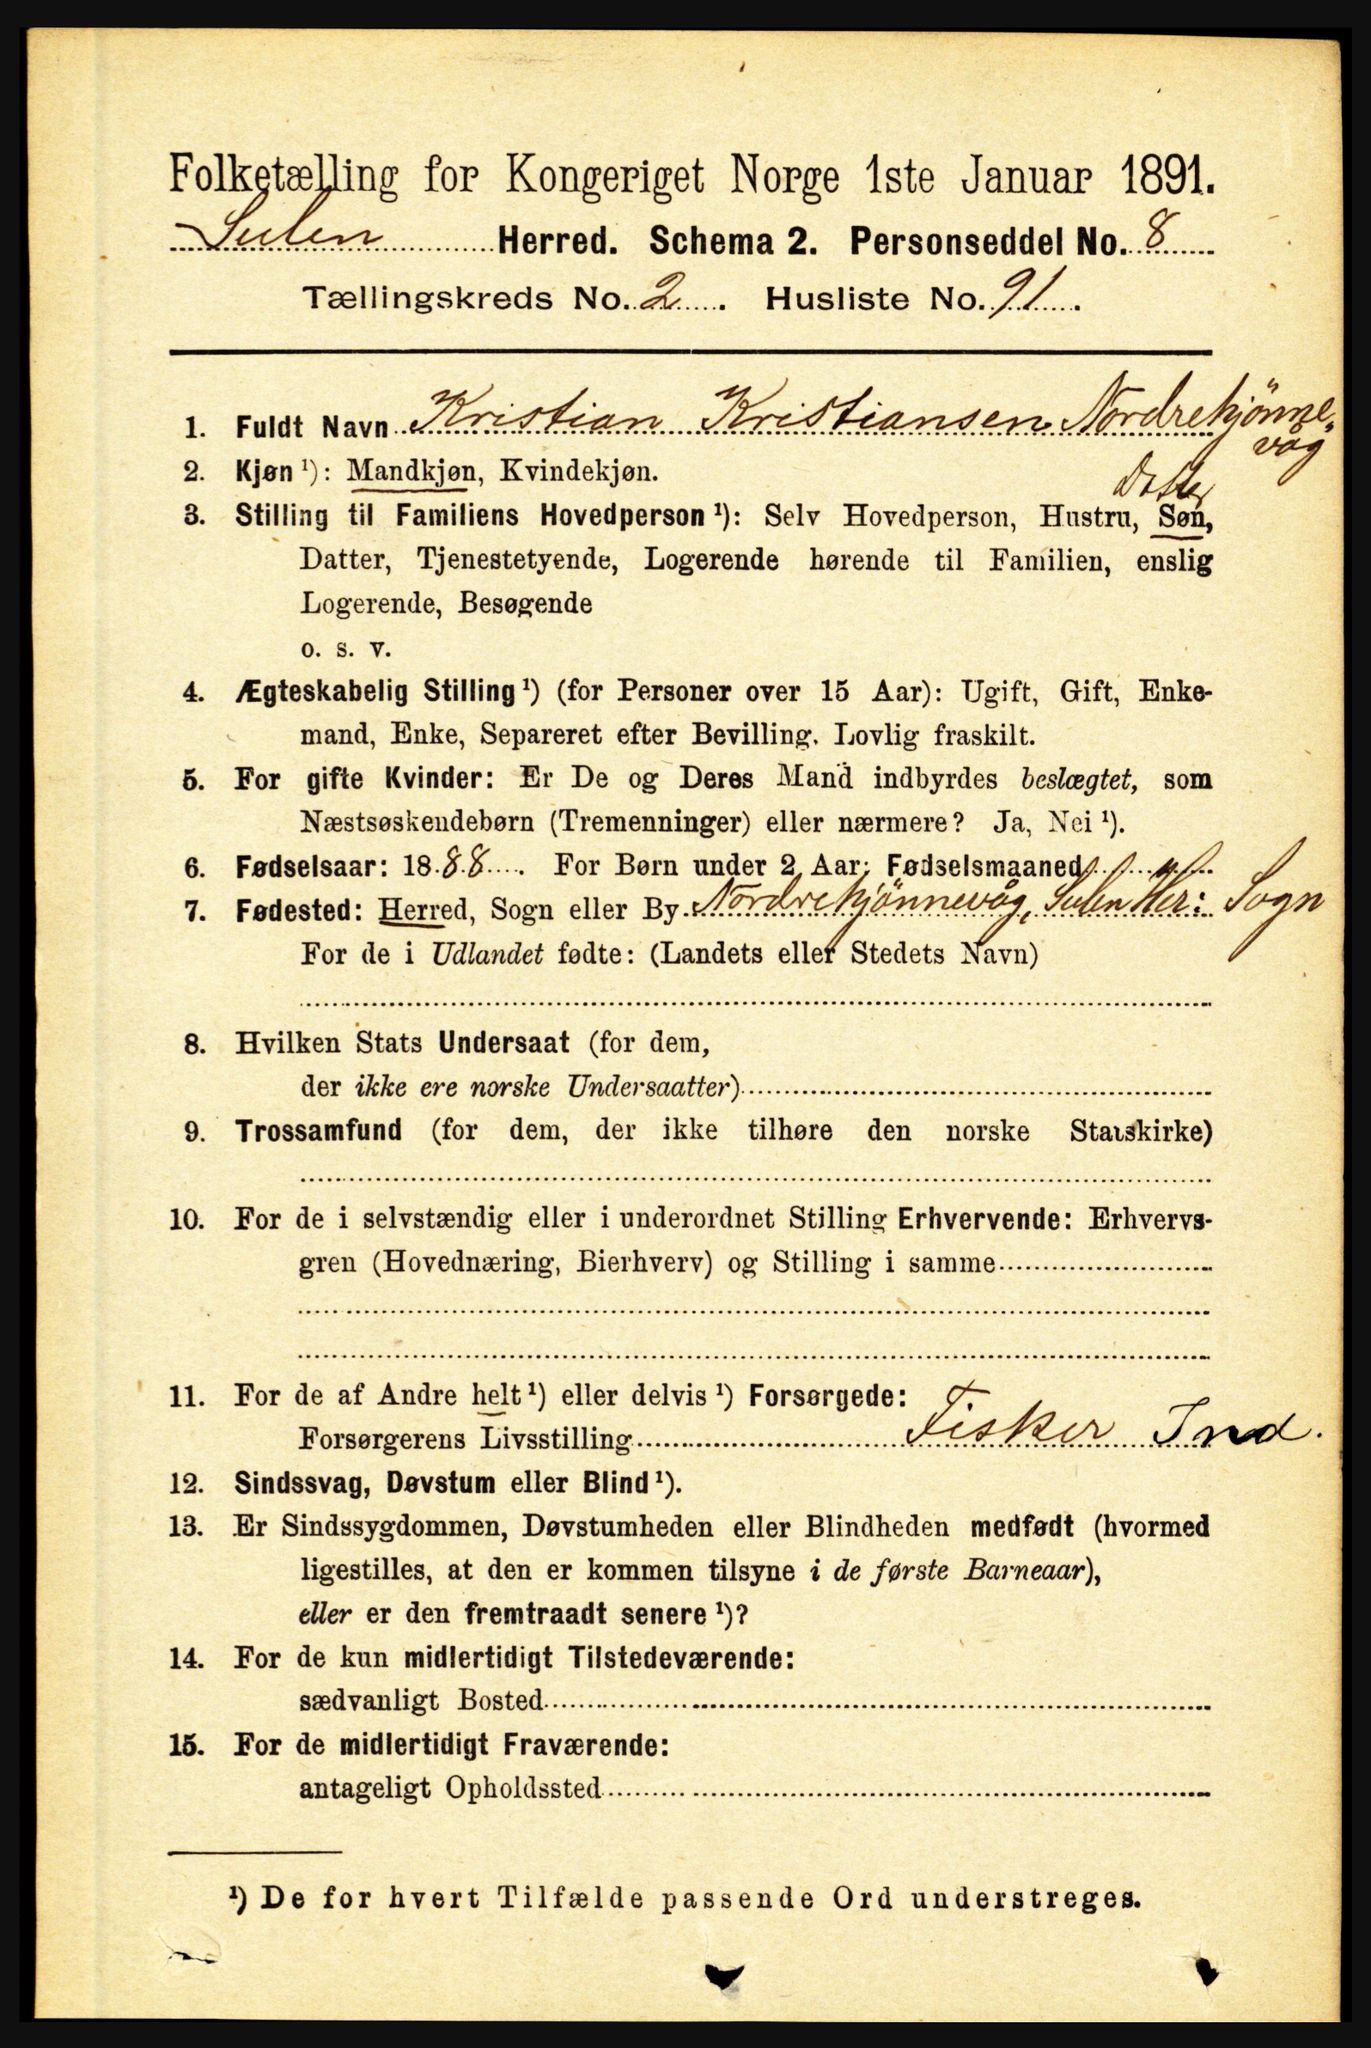 Folketælling for Kongeriget Norge 1ste Januar 1891.
Sulen Herred. Schema 2. Personseddel No. 8
Tællingskreds No. 2. Husliste No. 91.
1. Fuldt Navn Kristian Kristiansen Nordrehjønne-
våg
2. Kjøn¹): Mandkjøn, Kvindekjøn.
Datter
3. Stilling til Familiens Hovedperson¹): Selv Hovedperson, Hustru, Søn,
Datter, Tjenestetyende, Logerende hørende til Familien, enslig
Logerende, Besøgende
o. s. v.
4. Ægteskabelig Stilling¹) (for Personer over 15 Aar): Ugift, Gift, Enke-
mand, Enke, Separeret efter Bevilling. Lovlig fraskilt.
5. For gifte Kvinder: Er De og Deres Mand indbyrdes beslægtet, som
Næstsøskendebørn (Tremenninger) eller nærmere? Ja, Nei¹).
6. Fødselsaar: 1888. For Børn under 2 Aar: Fødselsmaaned
7. Fødested: Herred, Sogn eller By Nordrehjønnevåg, Sulen Her: Sogn
For de i Udlandet fødte: (Landets eller Stedets Navn)
8. Hvilken Stats Undersaat (for dem,
der ikke ere norske Undersaatter)
9. Trossamfund (for dem, der ikke tilhøre den norske Statskirke)
10. For de i selvstændig eller i underordnet Stilling Erhvervende: Erhvervs-
gren (Hovednæring, Bierhverv) og Stilling i samme
11. For de af Andre helt¹) eller delvis¹) Forsørgede:
Forsørgerens Livsstilling Fisker Ind.
12. Sindssvag, Døvstum eller Blind¹).
13. Er Sindssygdommen, Døvstumheden eller Blindheden medfødt (hvormed
ligestilles, at den er kommen tilsyne i de første Barneaar),
eller er den fremtraadt senere¹)?
14. For de kun midlertidigt Tilstedeværende:
sædvanligt Bosted
15. For de midlertidigt Fraværende:
antageligt Opholdssted
¹) De for hvert Tilfælde passende Ord understreges.